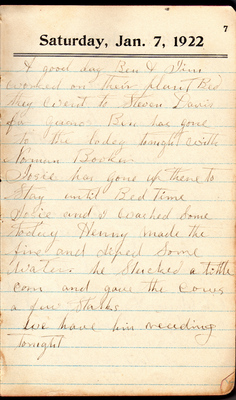 7
Saturday, Jan. 7, 1922
A good day Ben & Jim
worked on their plant Bed
they went to Steven Davis
for guano. Ben has gone
to the lodge tonight with
Norman Booker
Josie has gone up there to
Stay until Bed time
Josie and I washed Some
today Henny made the
fire and diped Some
Water he Shucked a little
corn and gave the cows
a few Stalks
We have bin reading
tonight